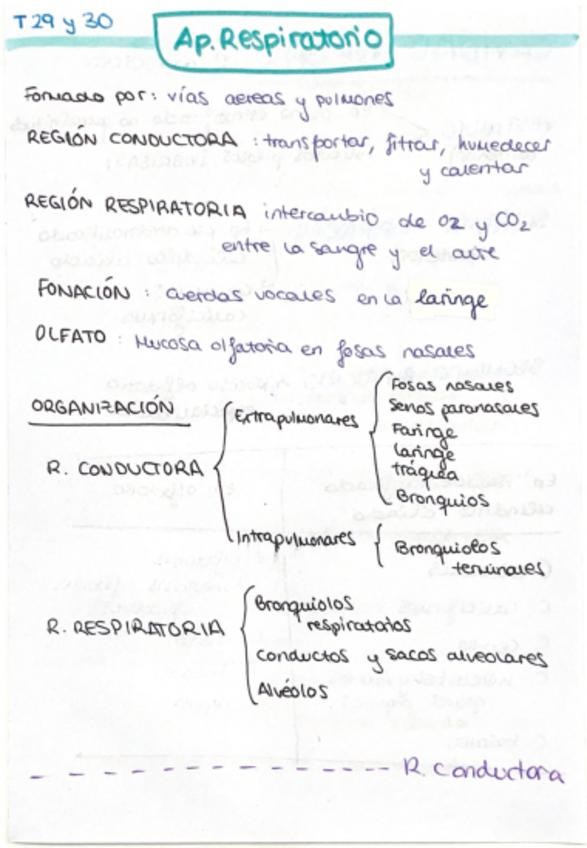 T 29 y 30
Ap. Respiratorio
Formado por: vías aereas y pulmones
REGIÓN CONDUCTORA : transportar, filtrar, humedecer
y calentar
REGIÓN RESPIRATORIA intercambio de O2 y CO2
entre la sangre y el aire
FONACIÓN : cuerdas vocales en la laringe
OLFATO : Mucosa olfatoria en fosas nasales
ORGANIZACIÓN
R. CONDUCTORA
Extrapulmonares
Fosas nasales
Senos paranasales
Faringe
laringe
tráquea
Bronquios
Intrapulmonares
Bronquiolos
terminales
R. RESPIRATORIA
Bronquiolos
respiratorios
conductos y sacos alveolares
Alvéolos
R. Conductora